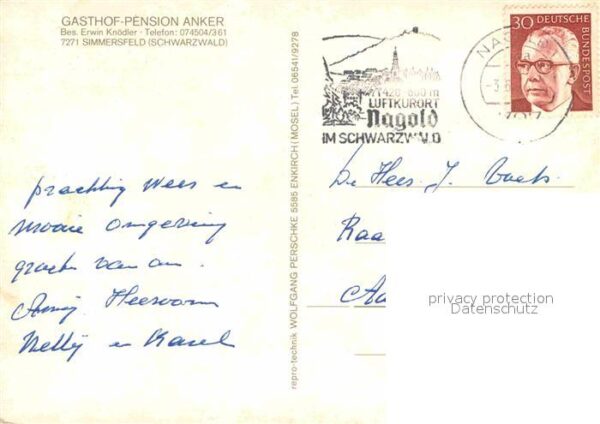 GASTHOF-PENSION ANKER
Bes. Erwin Knödler · Telefon: 074504/361
7271 SIMMERSFELD (SCHWARZWALD)
30 DEUTSCHE
BUNDESPOST
NA
420-800 m
LUFTKURORT
Nagold
IM SCHWARZWALD
prachtig weer en
mooie omgeving
groeten van
Heersoom
Nelly en Karel
repro-technik WOLFGANG PERSCHKE 5585 ENKIRCH (MOSEL) Tel. 06541/9278
De Heer J.
Raa
Aa
privacy protection
Datenschutz